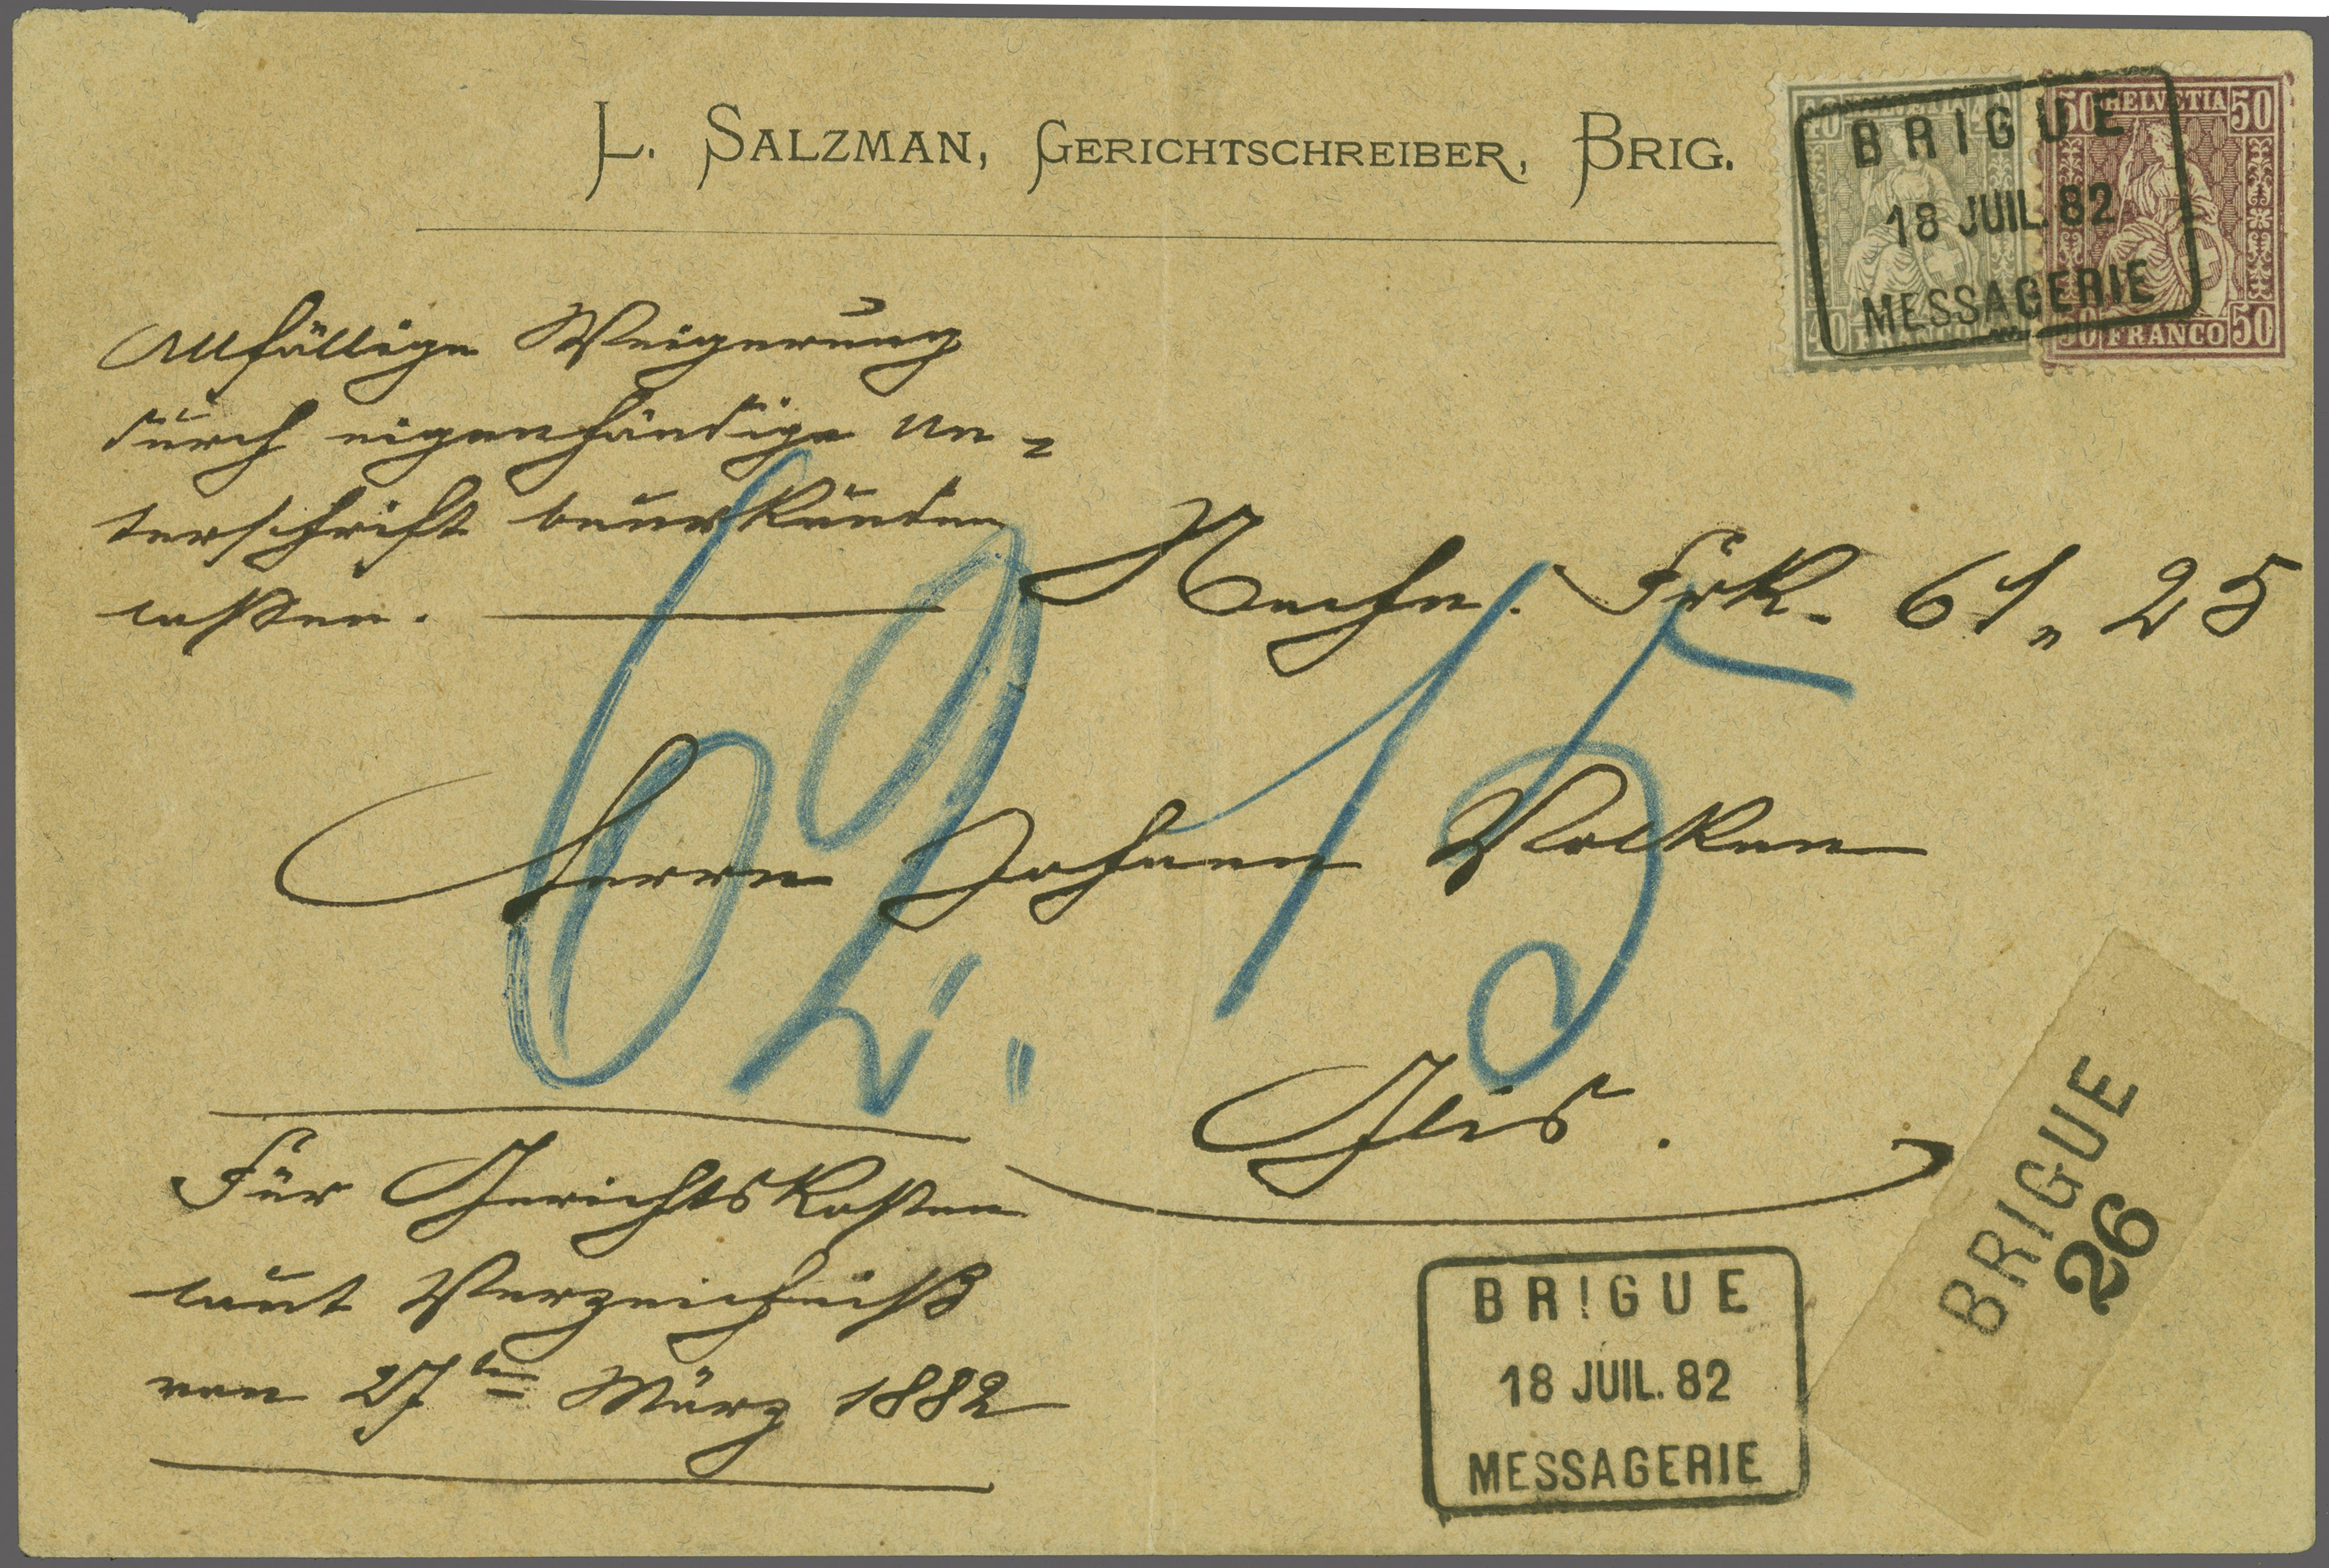 L. SALZMAN, GERICHTSCHREIBER, BRIG.
40 40
40 FRANCO
50 HELVETIA 50
50 FRANCO 50
BRIGUE
18 JUIL. 82
MESSAGERIE
Allfällige Weigerung
durch eigenhändige Un-
terschrift beurkunden
lassen.
Nachn. Frk. 61,, 25
62. 15
Herrn Johann Volken
Glis.
Für Gerichtskosten
laut Verzeichniß
von 27ten März 1882
BRIGUE
18 JUIL. 82
MESSAGERIE
BRIGUE
26